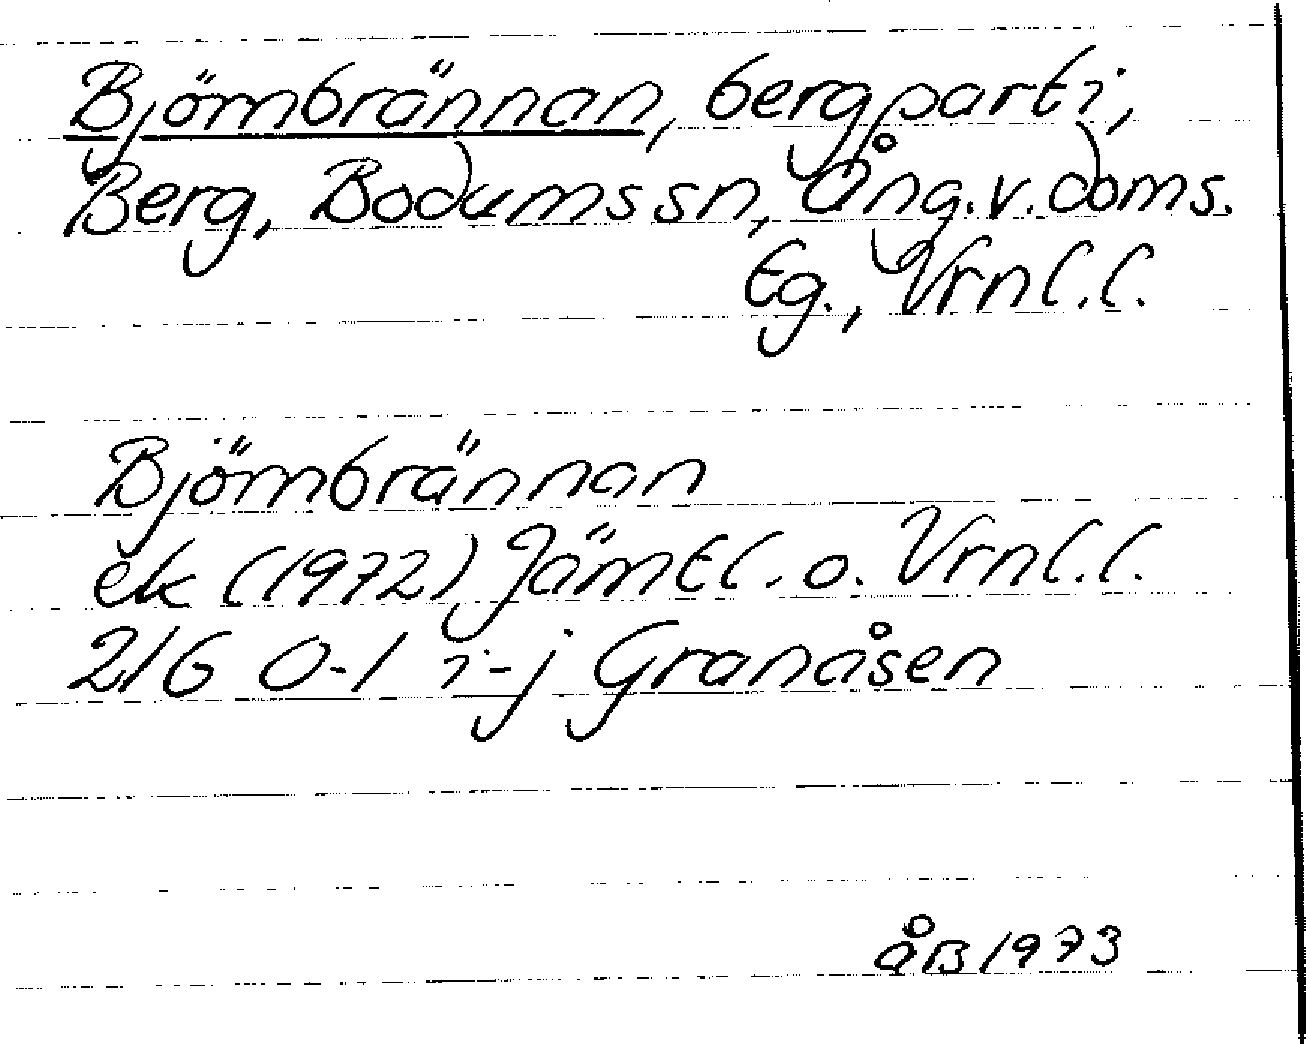 Björnbrännan, bergparti,
Berg, Bodums sn, Ång.v.doms.
Eg., Vrnl.l.
Björnbrännan
ek (1972) Jämtl. o. Vrnl.l.
21G 0-1 i-j Granåsen
ÅB 1973